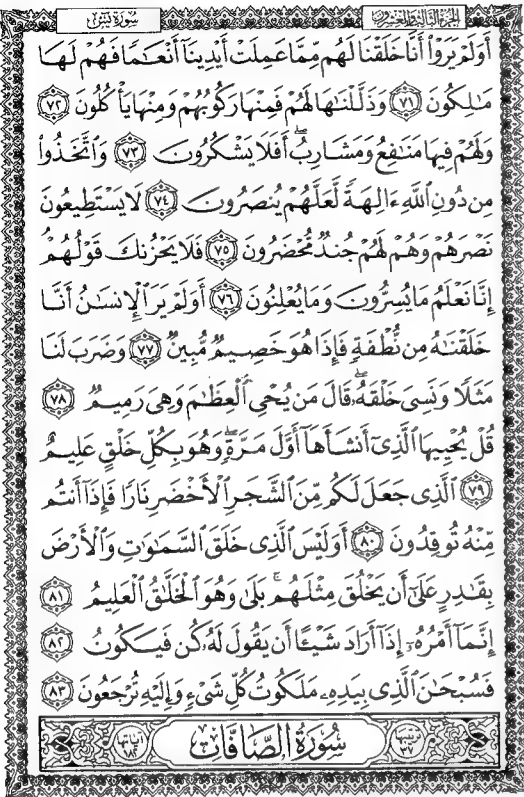 الجزء الثالث والعشرون سورة يس
أَوَلَمْ يَرَوْا۟ أَنَّا خَلَقْنَا لَهُم مِّمَّا عَمِلَتْ أَيْدِينَآ أَنْعَٰمًا فَهُمْ لَهَا
مَٰلِكُونَ ٧١ وَذَلَّلْنَٰهَا لَهُمْ فَمِنْهَا رَكُوبُهُمْ وَمِنْهَا يَأْكُلُونَ ٧٢
وَلَهُمْ فِيهَا مَنَٰفِعُ وَمَشَارِبُ ۖ أَفَلَا يَشْكُرُونَ ٧٣ وَٱتَّخَذُوا۟
مِن دُونِ ٱللَّهِ ءَالِهَةً لَّعَلَّهُمْ يُنصَرُونَ ٧٤ لَا يَسْتَطِيعُونَ
نَصْرَهُمْ وَهُمْ لَهُمْ جُندٌ مُّحْضَرُونَ ٧٥ فَلَا يَحْزُنكَ قَوْلُهُمْ ۘ
إِنَّا نَعْلَمُ مَا يُسِرُّونَ وَمَا يُعْلِنُونَ ٧٦ أَوَلَمْ يَرَ ٱلْإِنسَٰنُ أَنَّا
خَلَقْنَٰهُ مِن نُّطْفَةٍ فَإِذَا هُوَ خَصِيمٌ مُّبِينٌ ٧٧ وَضَرَبَ لَنَا
مَثَلًا وَنَسِىَ خَلْقَهُۥ ۖ قَالَ مَن يُحْىِ ٱلْعِظَٰمَ وَهِىَ رَمِيمٌ ٧٨
قُلْ يُحْيِيهَا ٱلَّذِىٓ أَنشَأَهَآ أَوَّلَ مَرَّةٍ ۖ وَهُوَ بِكُلِّ خَلْقٍ عَلِيمٌ
٧٩ ٱلَّذِى جَعَلَ لَكُم مِّنَ ٱلشَّجَرِ ٱلْأَخْضَرِ نَارًا فَإِذَآ أَنتُم
مِّنْهُ تُوقِدُونَ ٨٠ أَوَلَيْسَ ٱلَّذِى خَلَقَ ٱلسَّمَٰوَٰتِ وَٱلْأَرْضَ
بِقَٰدِرٍ عَلَىٰٓ أَن يَخْلُقَ مِثْلَهُم ۚ بَلَىٰ وَهُوَ ٱلْخَلَّٰقُ ٱلْعَلِيمُ ٨١
إِنَّمَآ أَمْرُهُۥٓ إِذَآ أَرَادَ شَيْـًٔا أَن يَقُولَ لَهُۥ كُن فَيَكُونُ ٨٢
فَسُبْحَٰنَ ٱلَّذِى بِيَدِهِۦ مَلَكُوتُ كُلِّ شَىْءٍ وَإِلَيْهِ تُرْجَعُونَ ٨٣
ترتيبها ٣٧ سُورَةُ الصَّافَّاتِ آياتها ١٨٢